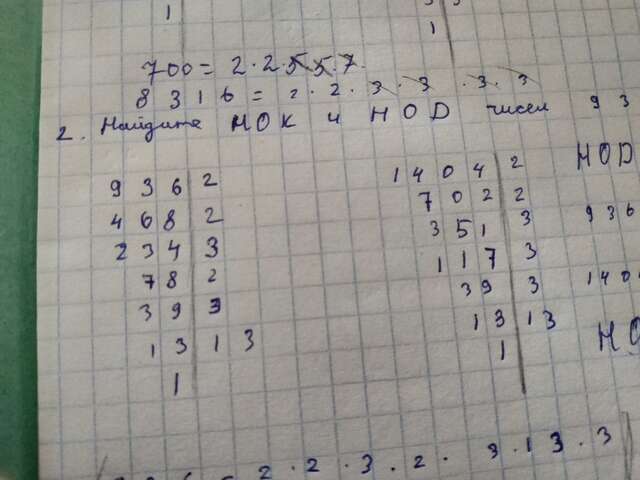 1
1
700 = 2 · 2 · 5 · 5 · 7
8316 = 2 · 2 · 3 · 3 · 3 · 3
2. Найдите НОК и НОD чисел 93
936 | 2
468 | 2
234 | 3
78 | 2
39 | 3
13 | 13
1
1404 | 2
702 | 2
351 | 3
117 | 3
39 | 3
13 | 13
1
НОD
936
140
НО
2 · 2 · 3 · 2 · 3 · 13 · 3